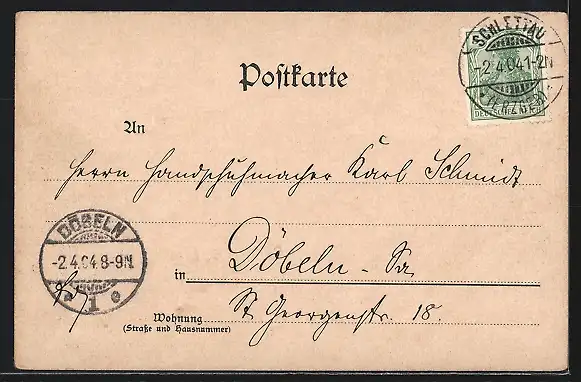 SCHLETTAU
-2.4.04.1-2N
*(ERZGEB)*
DEUTSCHES
Postkarte
An
Herrn Handschuhmacher Karl Schmidt
DÖBELN
-2.4.04.8-9N.
* 1 e
in Döbeln - Sa
St Georgenstr. 18.
Wohnung
(Straße und Hausnummer)